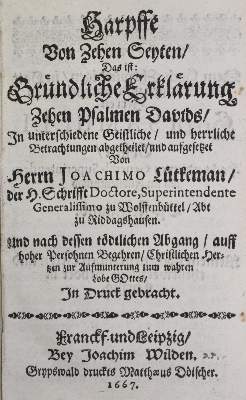 Harpffe
Von Zehen Seyten/
Das ist:
Gründliche Erklärung
Zehen Psalmen Davids/
In unterschiedene Geistliche/ und herrliche
Betrachtungen abgetheilet/ und aufgesetzet
Von
Herrn JOACHIMO Lütkeman/
der H. Schrifft Doctore, Superintendente
Generalissimo zu Wolffenbüttel/ Abt
zu Riddagshausen.
Und nach dessen tödtlichen Abgang/ auff
hoher Persohnen Begehren/ Christlichen Her-
tzen zur Auffmunterung zum wahren
Lobe GOttes/
In Druck gebracht.
Franckf. und Leipzig/
Bey Joachim Wilden.
Grypswald druckts Matthæus Döischer.
1667.